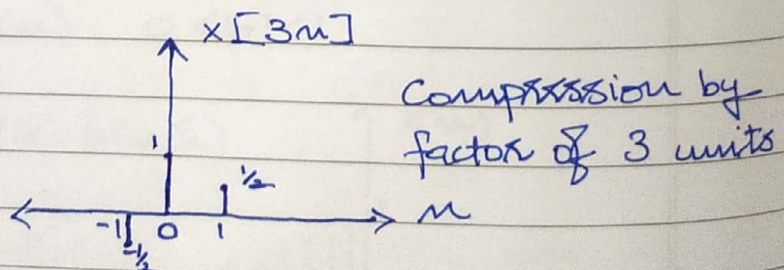 x[3n]
Compression by
factor of 3 units
1
1/2
-1 0 1 n
-1/2